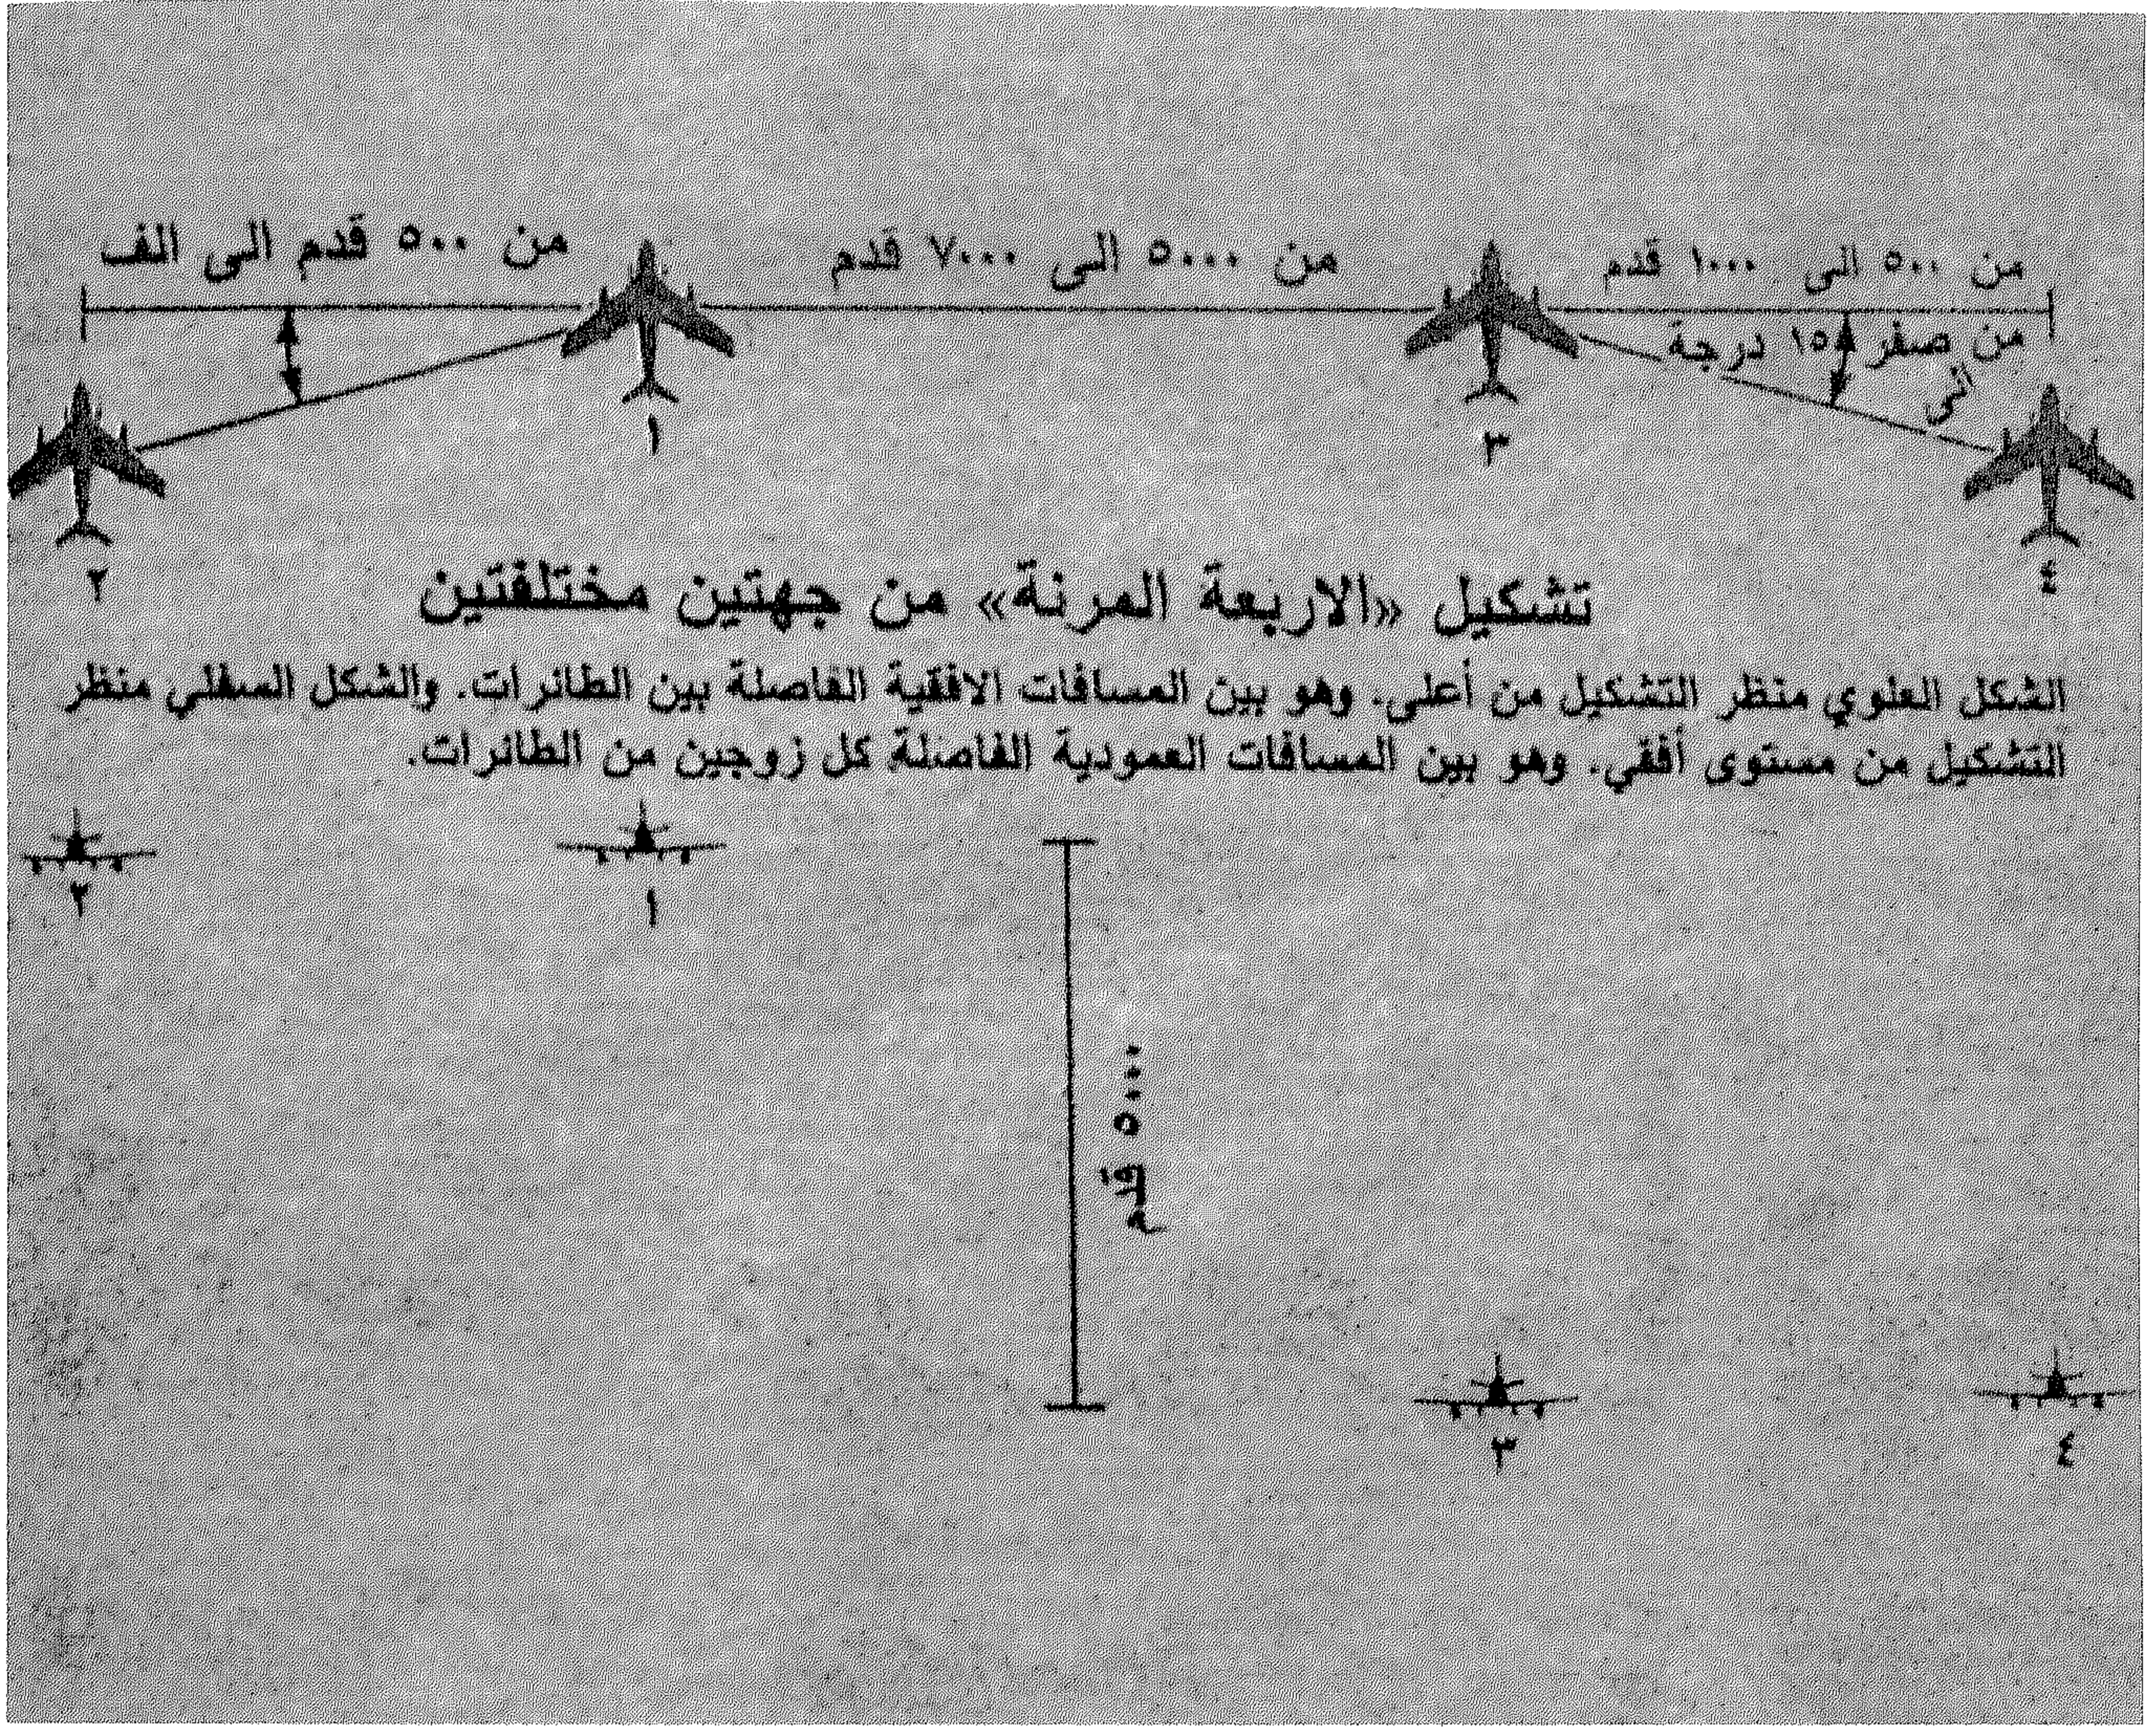 من ٥٠٠ الى ١٠٠٠ قدم
من ٥٠٠٠ الى ٧٠٠٠ قدم
من ٥٠٠ قدم الى الف
من صفر الى ١٥ درجة
١
٣
٢
٤
تشكيل «الاربعة المرنة» من جهتين مختلفتين
الشكل العلوي منظر التشكيل من أعلى. وهو بين المسافات الافقية الفاصلة بين الطائرات. والشكل السفلي منظر
التشكيل من مستوى أفقي. وهو بين المسافات العمودية الفاصلة كل زوجين من الطائرات.
١
٢
٥٠٠٠ قدم
٣
٤